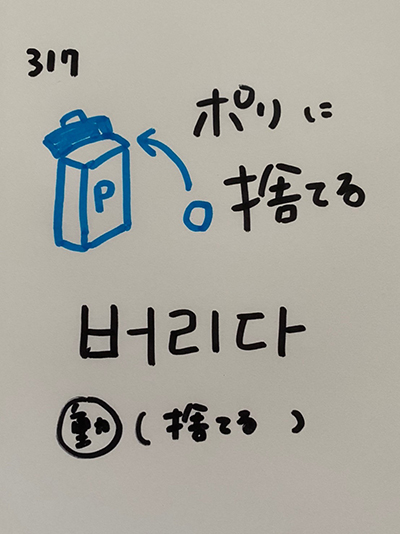 317
ポリに
P
捨てる
버리다
動 (捨てる)